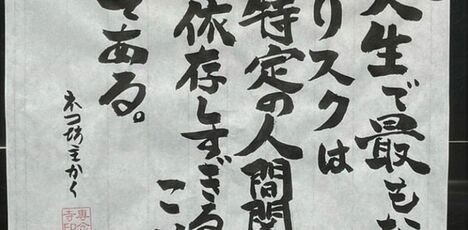 人生で最も
りスクは
特定の人間関
依存しすぎる
こ
である。
ネコ坊主かく
専念寺印